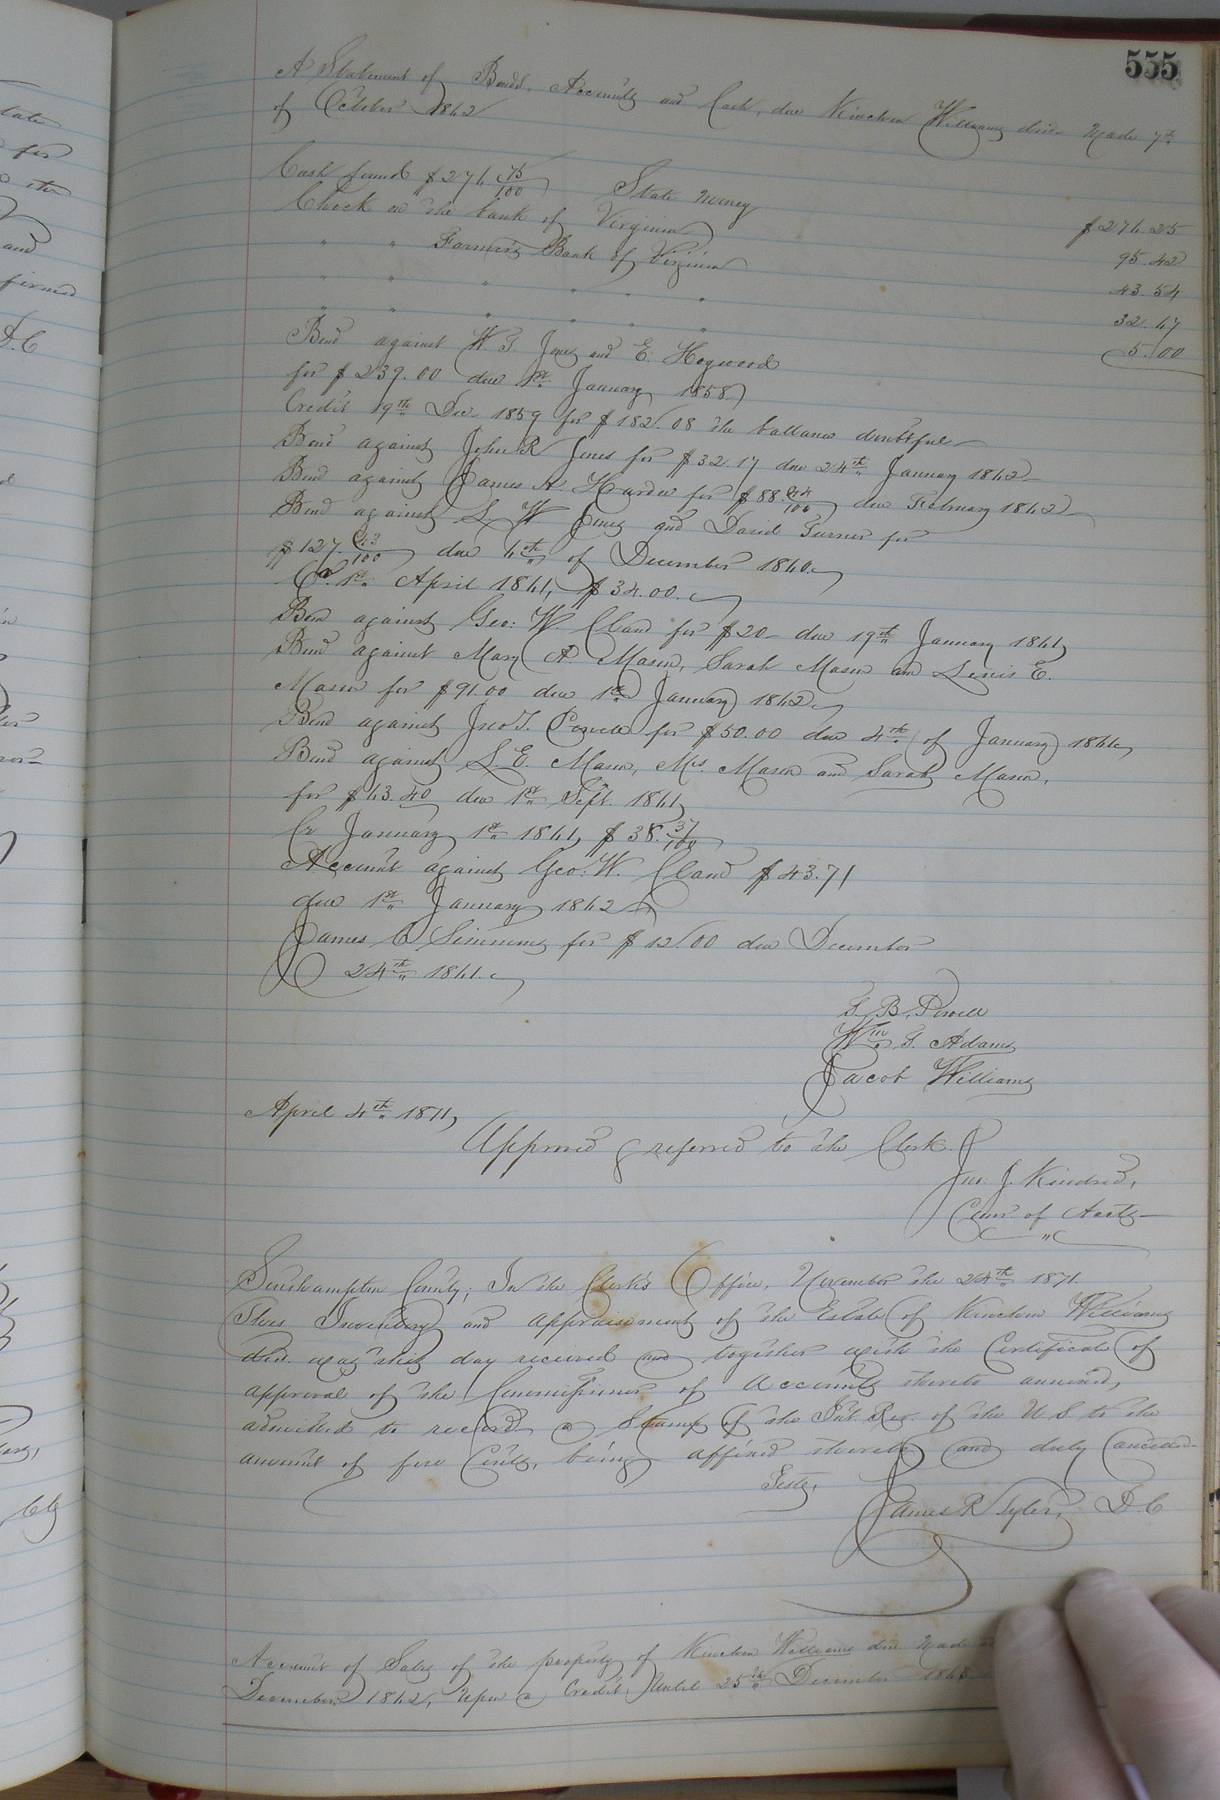 555
A Statement of Bonds, Accounts and Cash, due Kinchen Williams decd. Made 7th
of October 1862
Cash found $276 25/100 State money $276.25
Check on the bank of Virginia 95.42
" " Farmers Bank of Virginia 43.54
" " " " " 32.67
" " " " " 5.00
Bond against W T Jones and E. Hogwood
for $239.00 due 1st January 1858
Credit 19th Dec 1859 for $182.08 the ballance doubtful
Bond against John R Jones for $32.17 due 24th January 1862
Bond against James A Harder for $88 44/100 due February 1862
Bond against L W Jones and David Turner for
$127. 63/100 due 6th of December 1860.
Cr. 1st April 1861, $34.00.
Bond against Geo: W. Cland for $20 due 19th January 1861
Bond against Mary A Mason, Sarah Mason an Lewis E.
Mason for $91.00 due 1st January 1862
Bond against Jno T. Powell for $50.00 due 4th of January 1861
Bond against L. E. Mason, Mrs. Mason and Sarah Mason,
for $63.40 due 1st Sept. 1861
Cr January 1st 1861, $38. 37/100
Account against Geo. W. Cland $43.71
due 1st January 1862
James Simmons for $12.00 due December
24th 1861.
T. B. Powell
Wm T. Adams
Jacob Williams
April 4th 1871,
Approved & referred to the Clerk.
Jno. J. Kindred,
Comr of Accts
Southampton County; In the Clerk's Office, November the 24th 1871.
This Inventory and appraisement of the Estate of Kinchen Williams
decd. was this day received and together with the Certificate of
approval of the Commissioner of Accounts thereto annexed,
admitted to record, a Stamp of the Int. Rev. of the U S to the
amount of five Cents, being affixed thereto and duly canceled
Teste,
James R Tyler, D.C
Account of Sales of the property of Kinchen Williams decd Made
December 1862, Upon a Credit Until 25th December 1863